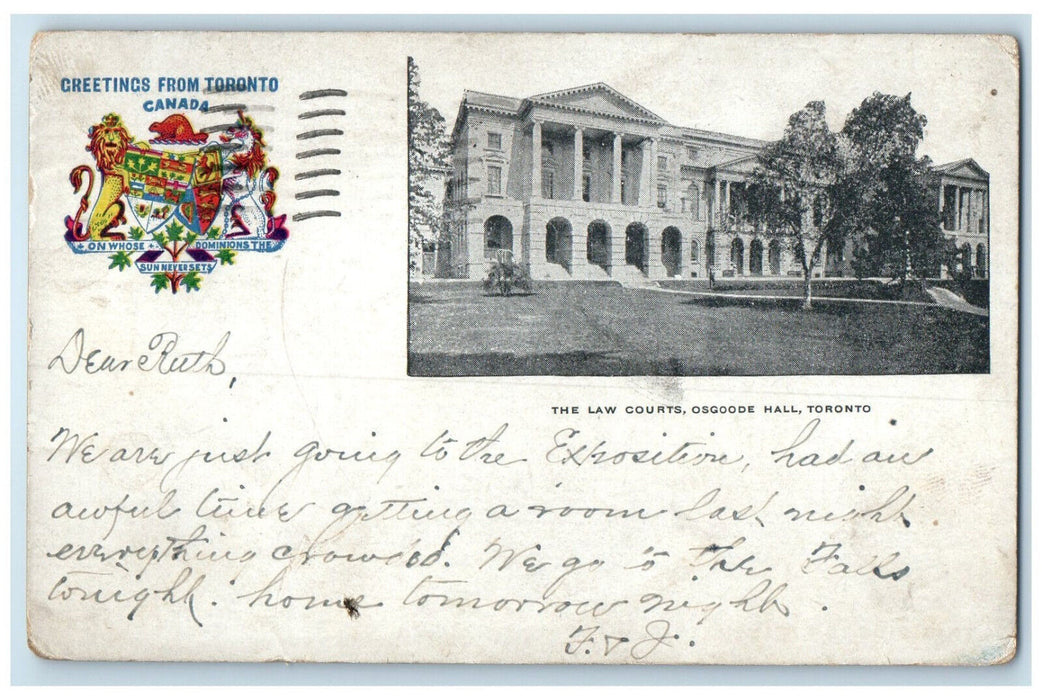 GREETINGS FROM TORONTO
CANADA
ON WHOSE DOMINIONS THE
SUN NEVER SETS
THE LAW COURTS, OSGOODE HALL, TORONTO
Dear Ruth,
We are just going to the Exposition, had an
awful time getting a room last night
everything crowded. We go to the Falls
tonight. home tomorrow night.
F. & J.